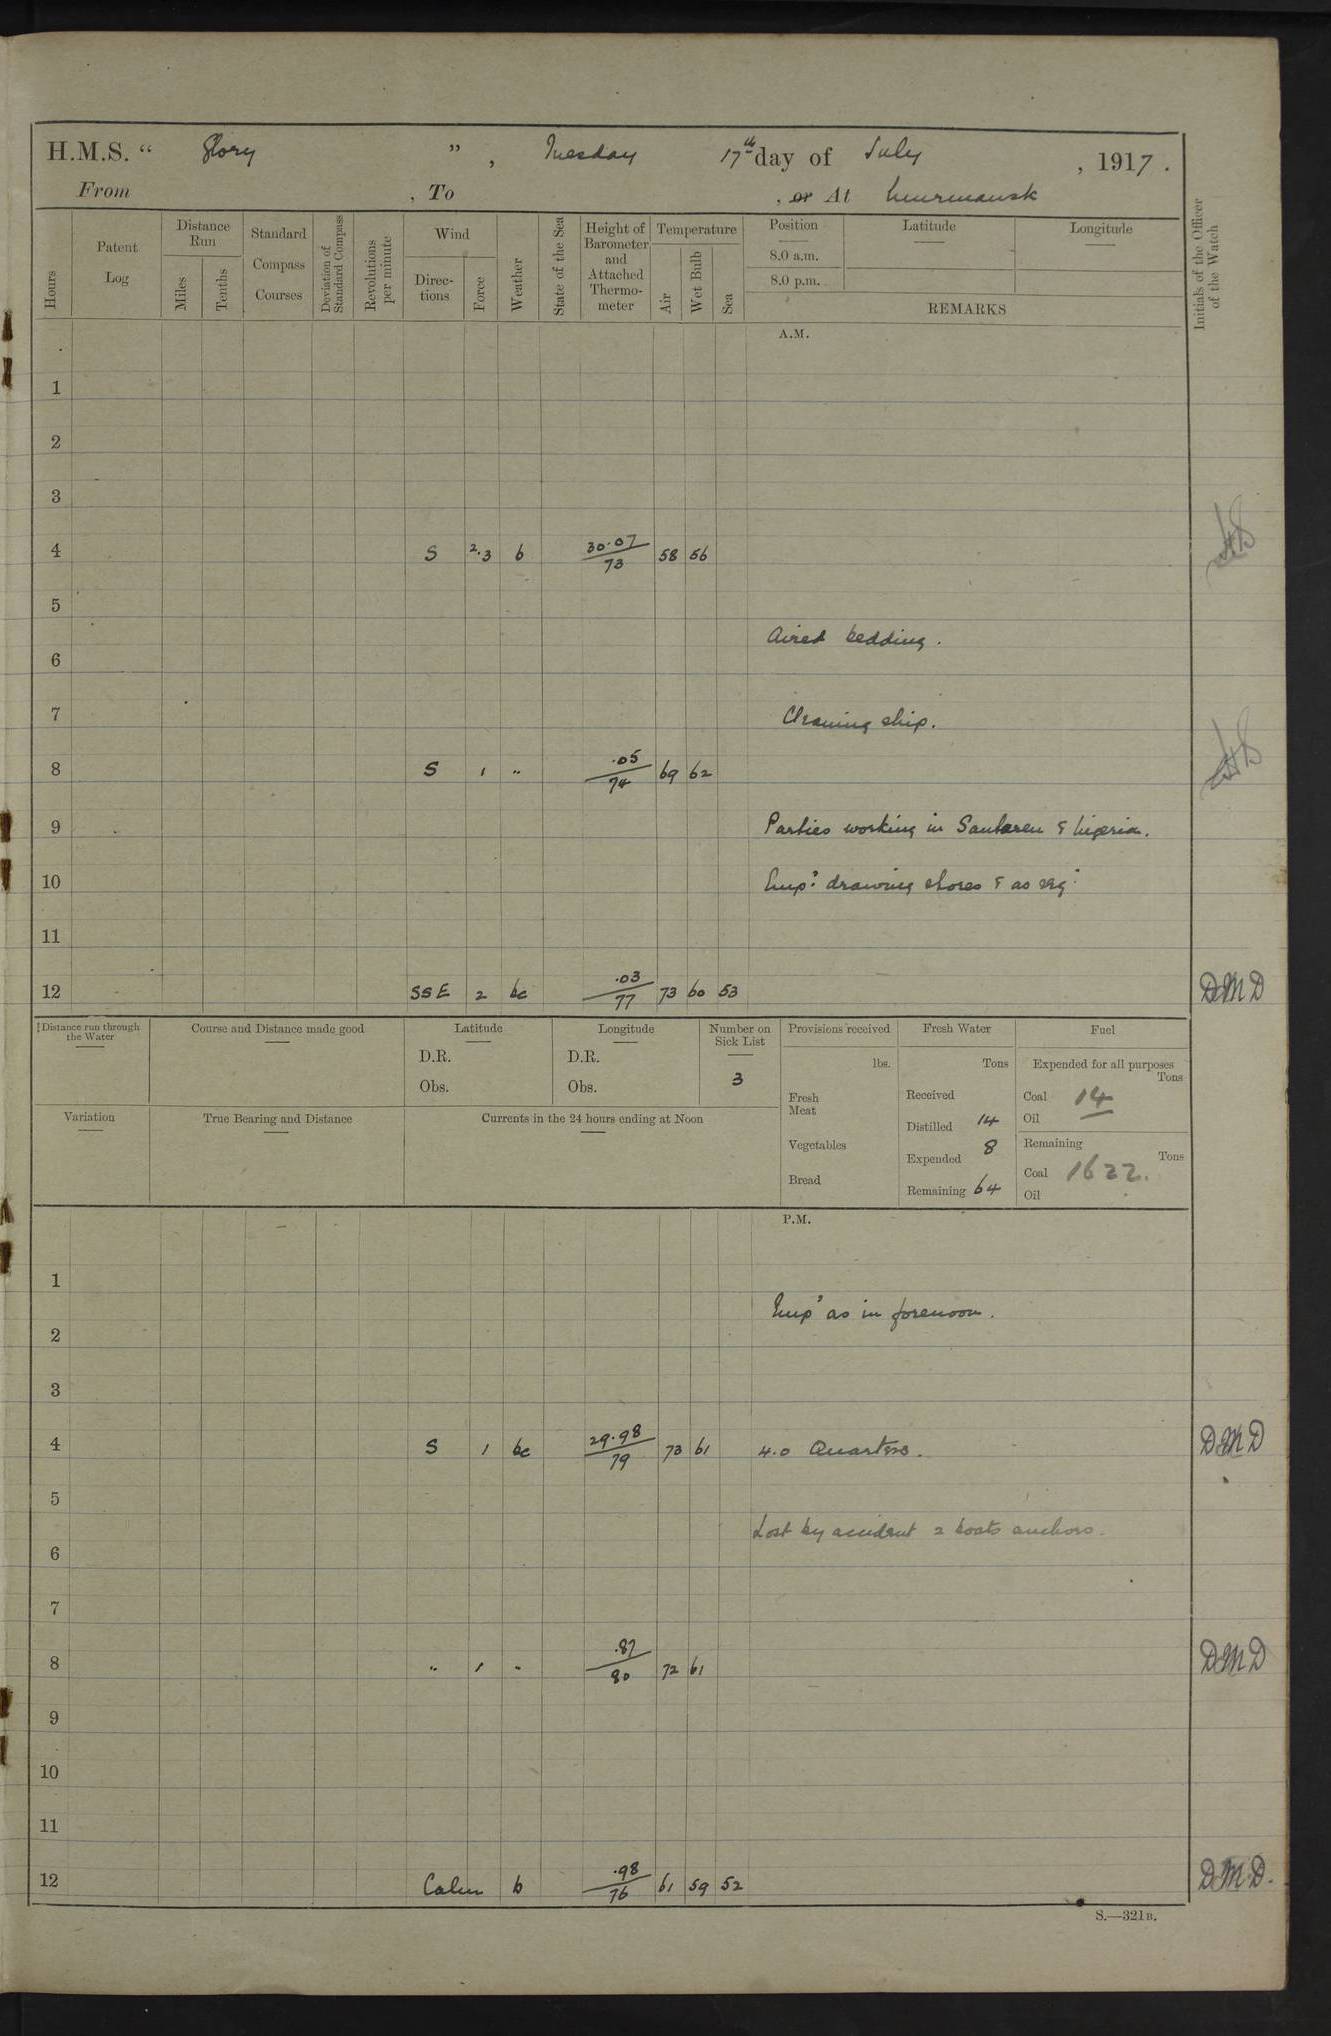 H.M.S. “ Glory ” , Tuesday 17th day of July , 1917 .
From , To , or At Murmansk
Hours
Patent Log
Distance Run
Miles
Tenths
Standard Compass Courses
Deviation of Standard Compass
Revolutions per minute
Wind
Directions
Force
Weather
State of the Sea
Height of Barometer and Attached Thermometer
Temperature
Air
Wet Bulb
Sea
Position
8.0 a.m.
8.0 p.m.
Latitude
Longitude
REMARKS
Initials of the Officer of the Watch
A.M.
1
2
3
4 S 2.3 b 30.07/73 58 56
5
Aired bedding.
6
7 Cleaning ship.
8 S 1 " .05/74 69 62
9 Parties working in Santaren & Nigeria.
10 Emp: drawing stores & as req:
11
12 SSE 2 bc .03/77 73 60 53 DMD
Distance run through the Water
Course and Distance made good
Latitude
D.R.
Obs.
Longitude
D.R.
Obs.
Number on Sick List
3
Provisions received
lbs.
Fresh Meat
Vegetables
Bread
Fresh Water
Tons
Received
Distilled 14
Expended 8
Remaining 64
Fuel
Expended for all purposes
Tons
Coal 14
Oil
Remaining
Tons
Coal 1622.
Oil
Variation
True Bearing and Distance
Currents in the 24 hours ending at Noon
P.M.
1
Emp' as in forenoon.
2
3
4 S 1 bc 29.98/79 73 61 4.0 Quarters. DMD
5
Lost by accident 2 boats anchors.
6
7
8 " 1 " .87/80 72 61 DMD
9
10
11
12 Calm b .98/76 61 59 52 DMD.
S.—321B.